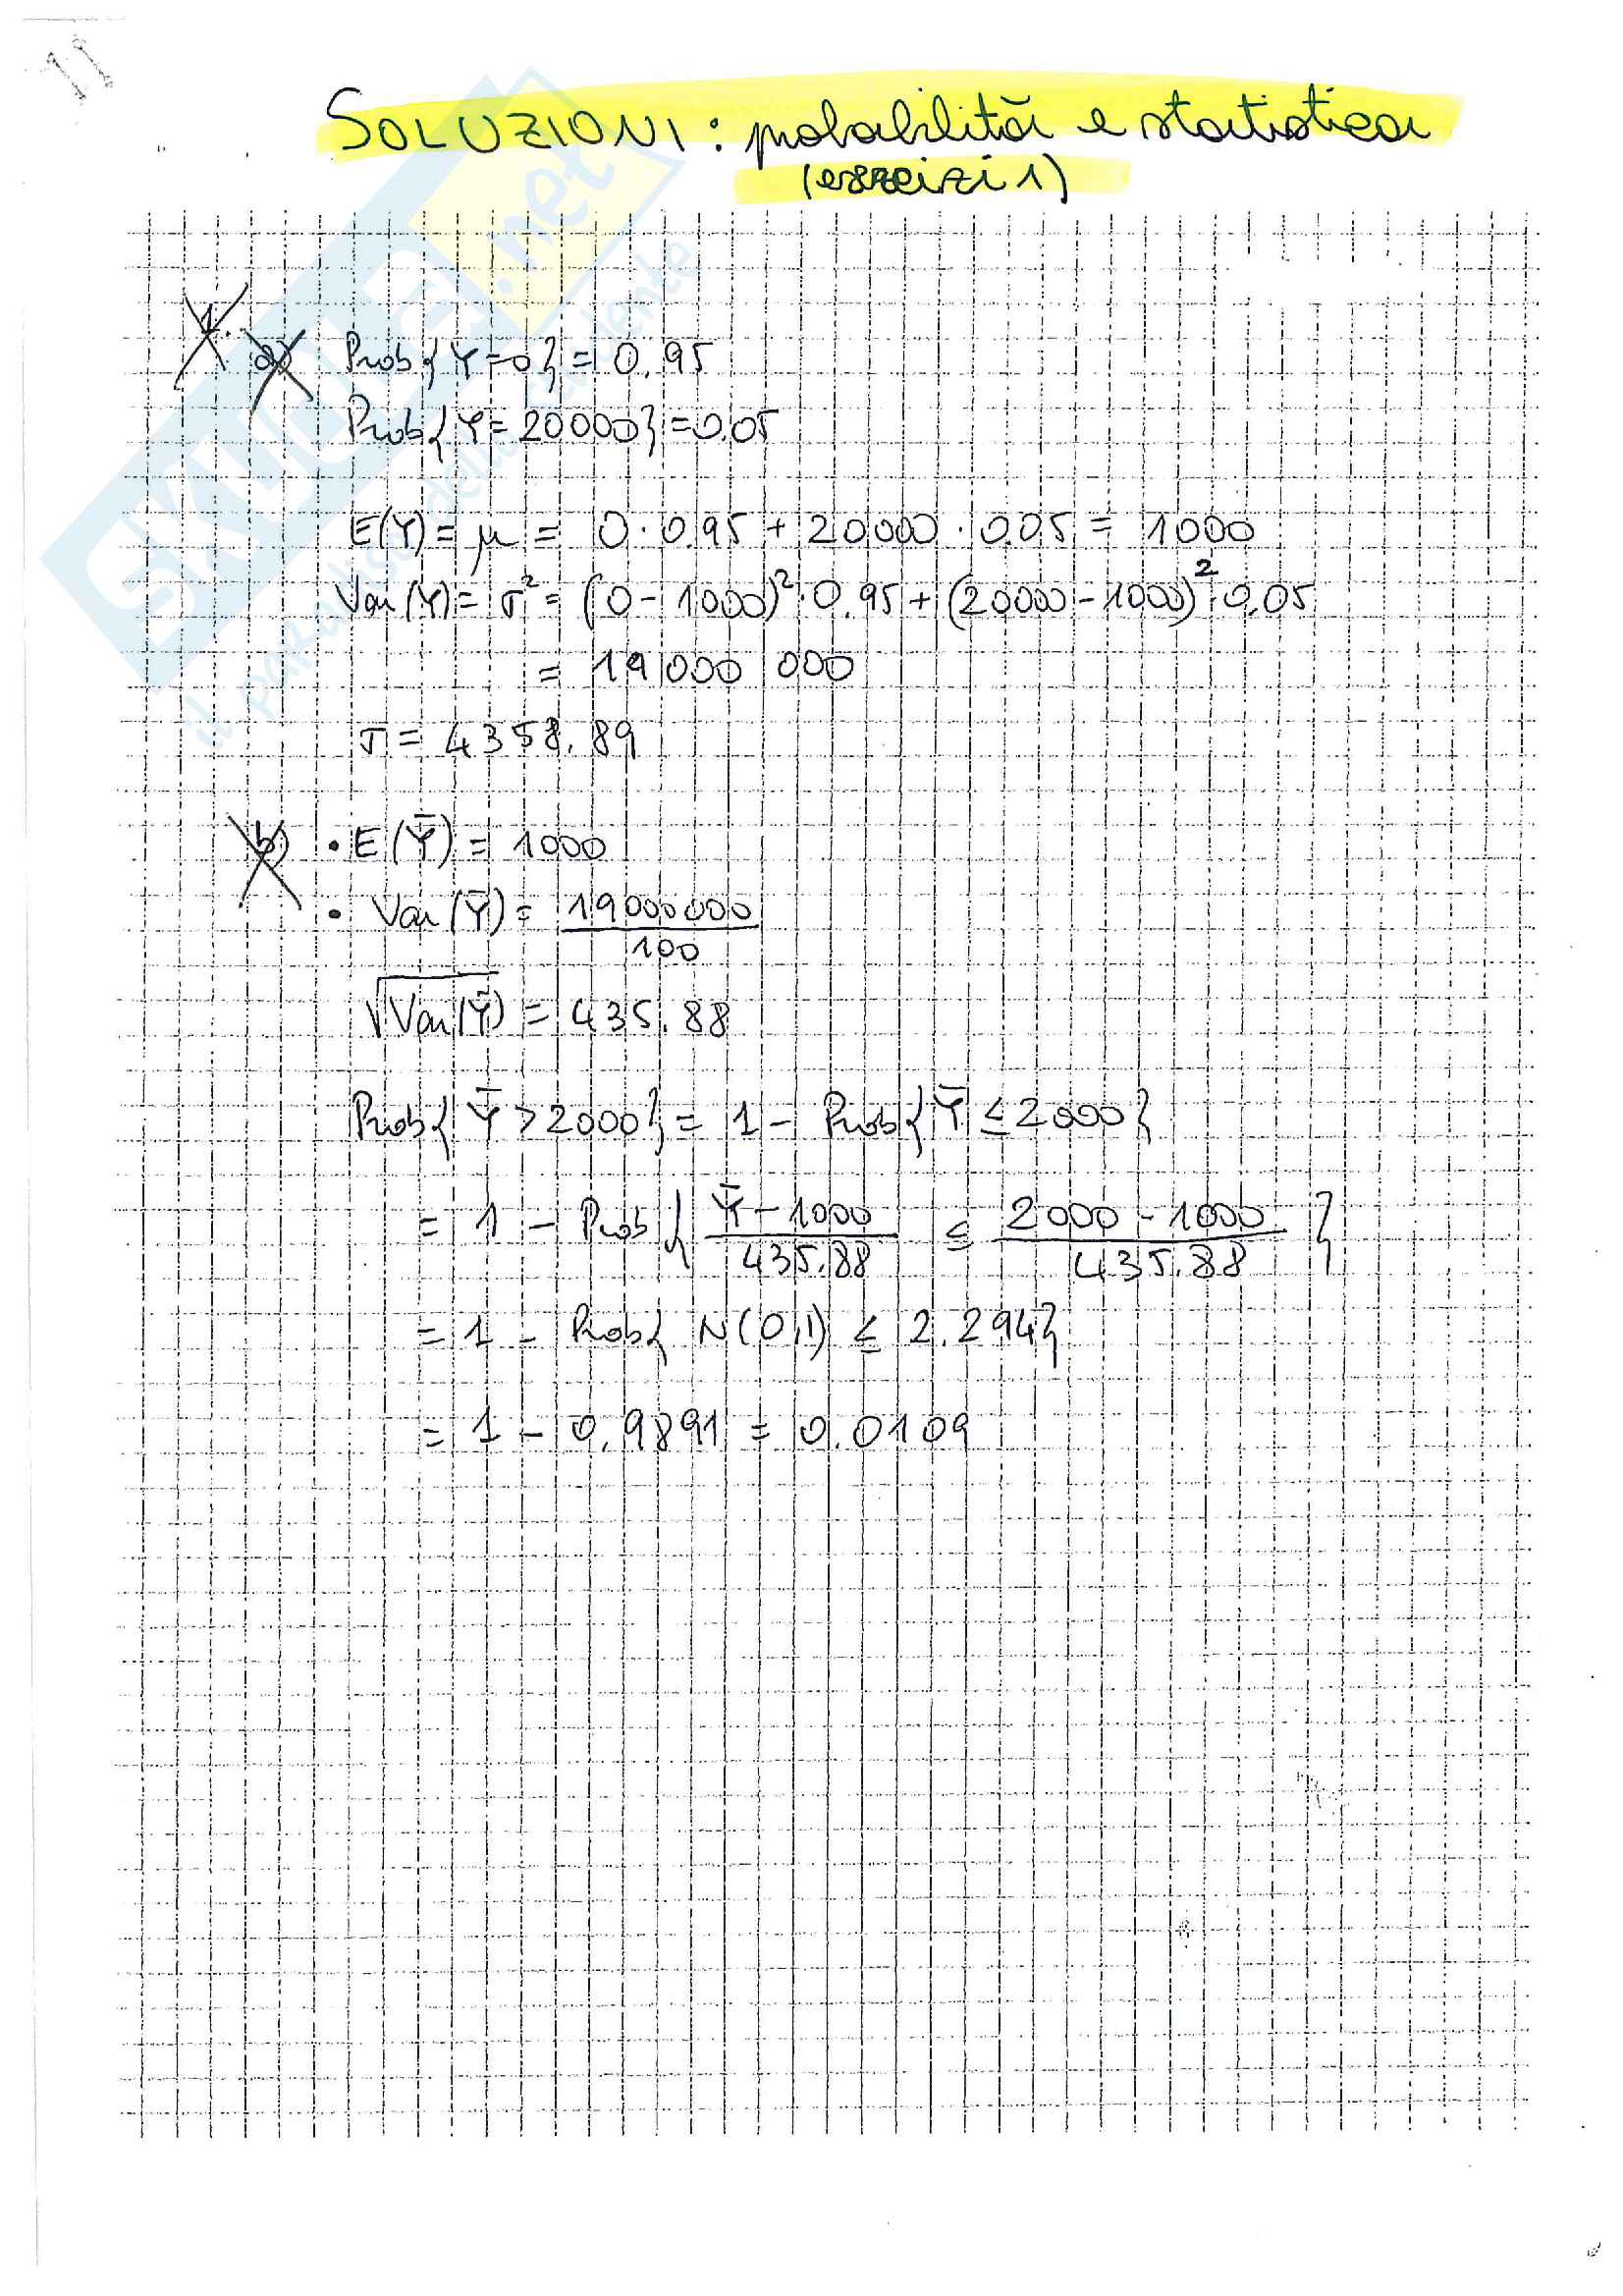 11
SOLUZIONI: probabilità e statistica
(esercizi 1)
SKUOLA.net
il paradiso dello studente
1.
a) Prob{Y=0} = 0.95
Prob{Y=20000} = 0.05
E(Y) = μ = 0 · 0.95 + 20000 · 0.05 = 1000
Var(Y) = σ² = (0 - 1000)² · 0.95 + (20000 - 1000)² · 0.05
= 19 000 000
σ = 4358.89
b) • E(Ȳ) = 1000
• Var(Ȳ) = 19000000/100
√Var(Ȳ) = 435.88
Prob{Ȳ > 2000} = 1 - Prob{Ȳ ≤ 2000}
= 1 - Prob{(Ȳ - 1000)/435.88 ≤ (2000 - 1000)/435.88}
= 1 - Prob{N(0,1) ≤ 2.294}
= 1 - 0.9891 = 0.0109